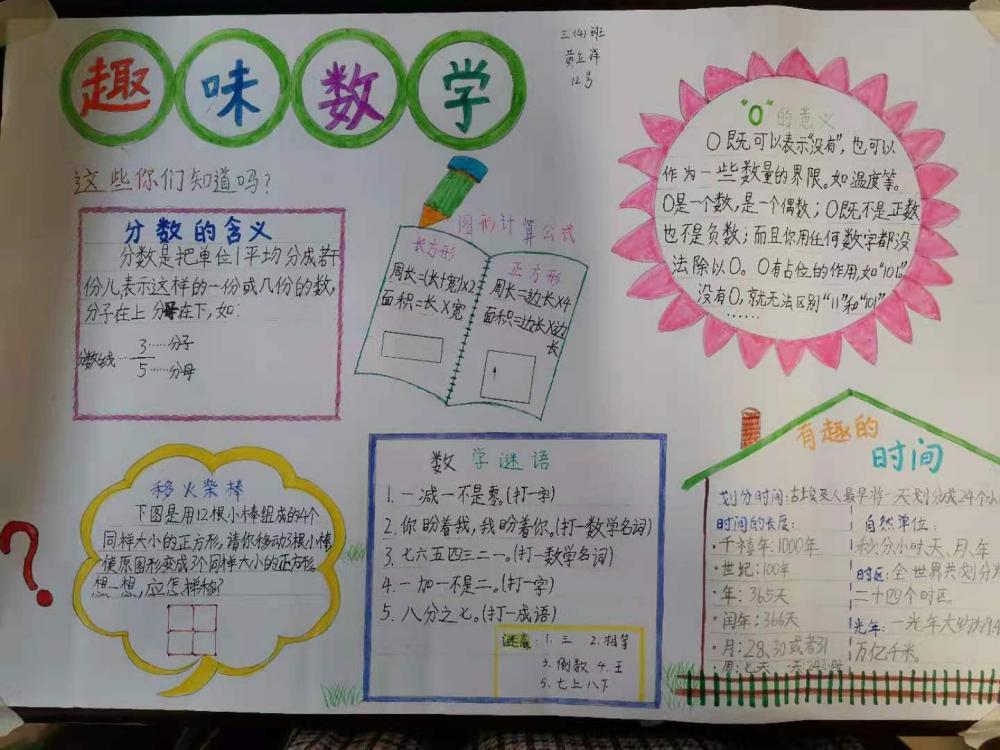 趣味数学
三(4)班
黄立洋
12号
这些你们知道吗?
分数的含义
分数是把单位1平均分成若干
份儿表示这样的一份或几份的数,
分子在上分母在下,如:
分数线……3……分子
5……分母
图形计算公式
长方形
周长=(长+宽)×2
面积=长×宽
正方形
周长=边长×4
面积=边长×边
长
"0"的意义
0既可以表示"没有",也可以
作为一些数量的界限。如温度等。
0是一个数,是一个偶数;0既不是正数
也不是负数;而且你用任何数字都没
法除以0。0有占位的作用,如"101"
没有0,就无法区别"11"和"101"
……
移火柴棒
下图是用12根小棒组成的4个
同样大小的正方形,请你移动3根小棒,
使原图形变成3个同样大小的正方形。
想一想,应怎样移?
?
数学谜语
1. 一减一不是零。(打一字)
2. 你盼着我,我盼着你。(打一数学名词)
3. 七六五四三二一。(打一数学名词)
4. 一加一不是二。(打一字)
5. 八分之七。(打一成语)
谜底:1. 三 2. 相等
3. 倒数 4. 王
5. 七上八下
有趣的
时间
划分时间:古埃及人最早将一天划分成24个小
时间的长度:
·千禧年:1000年
·世纪:100年
·年:365天
·闰年:366天
·月:28、30或者31
·周:七天 天:24小时
自然单位:
秒、分、小时、天、月、年
时区:全世界共划分为
二十四个时区。
光年:一光年大约为9.4
万亿千米。